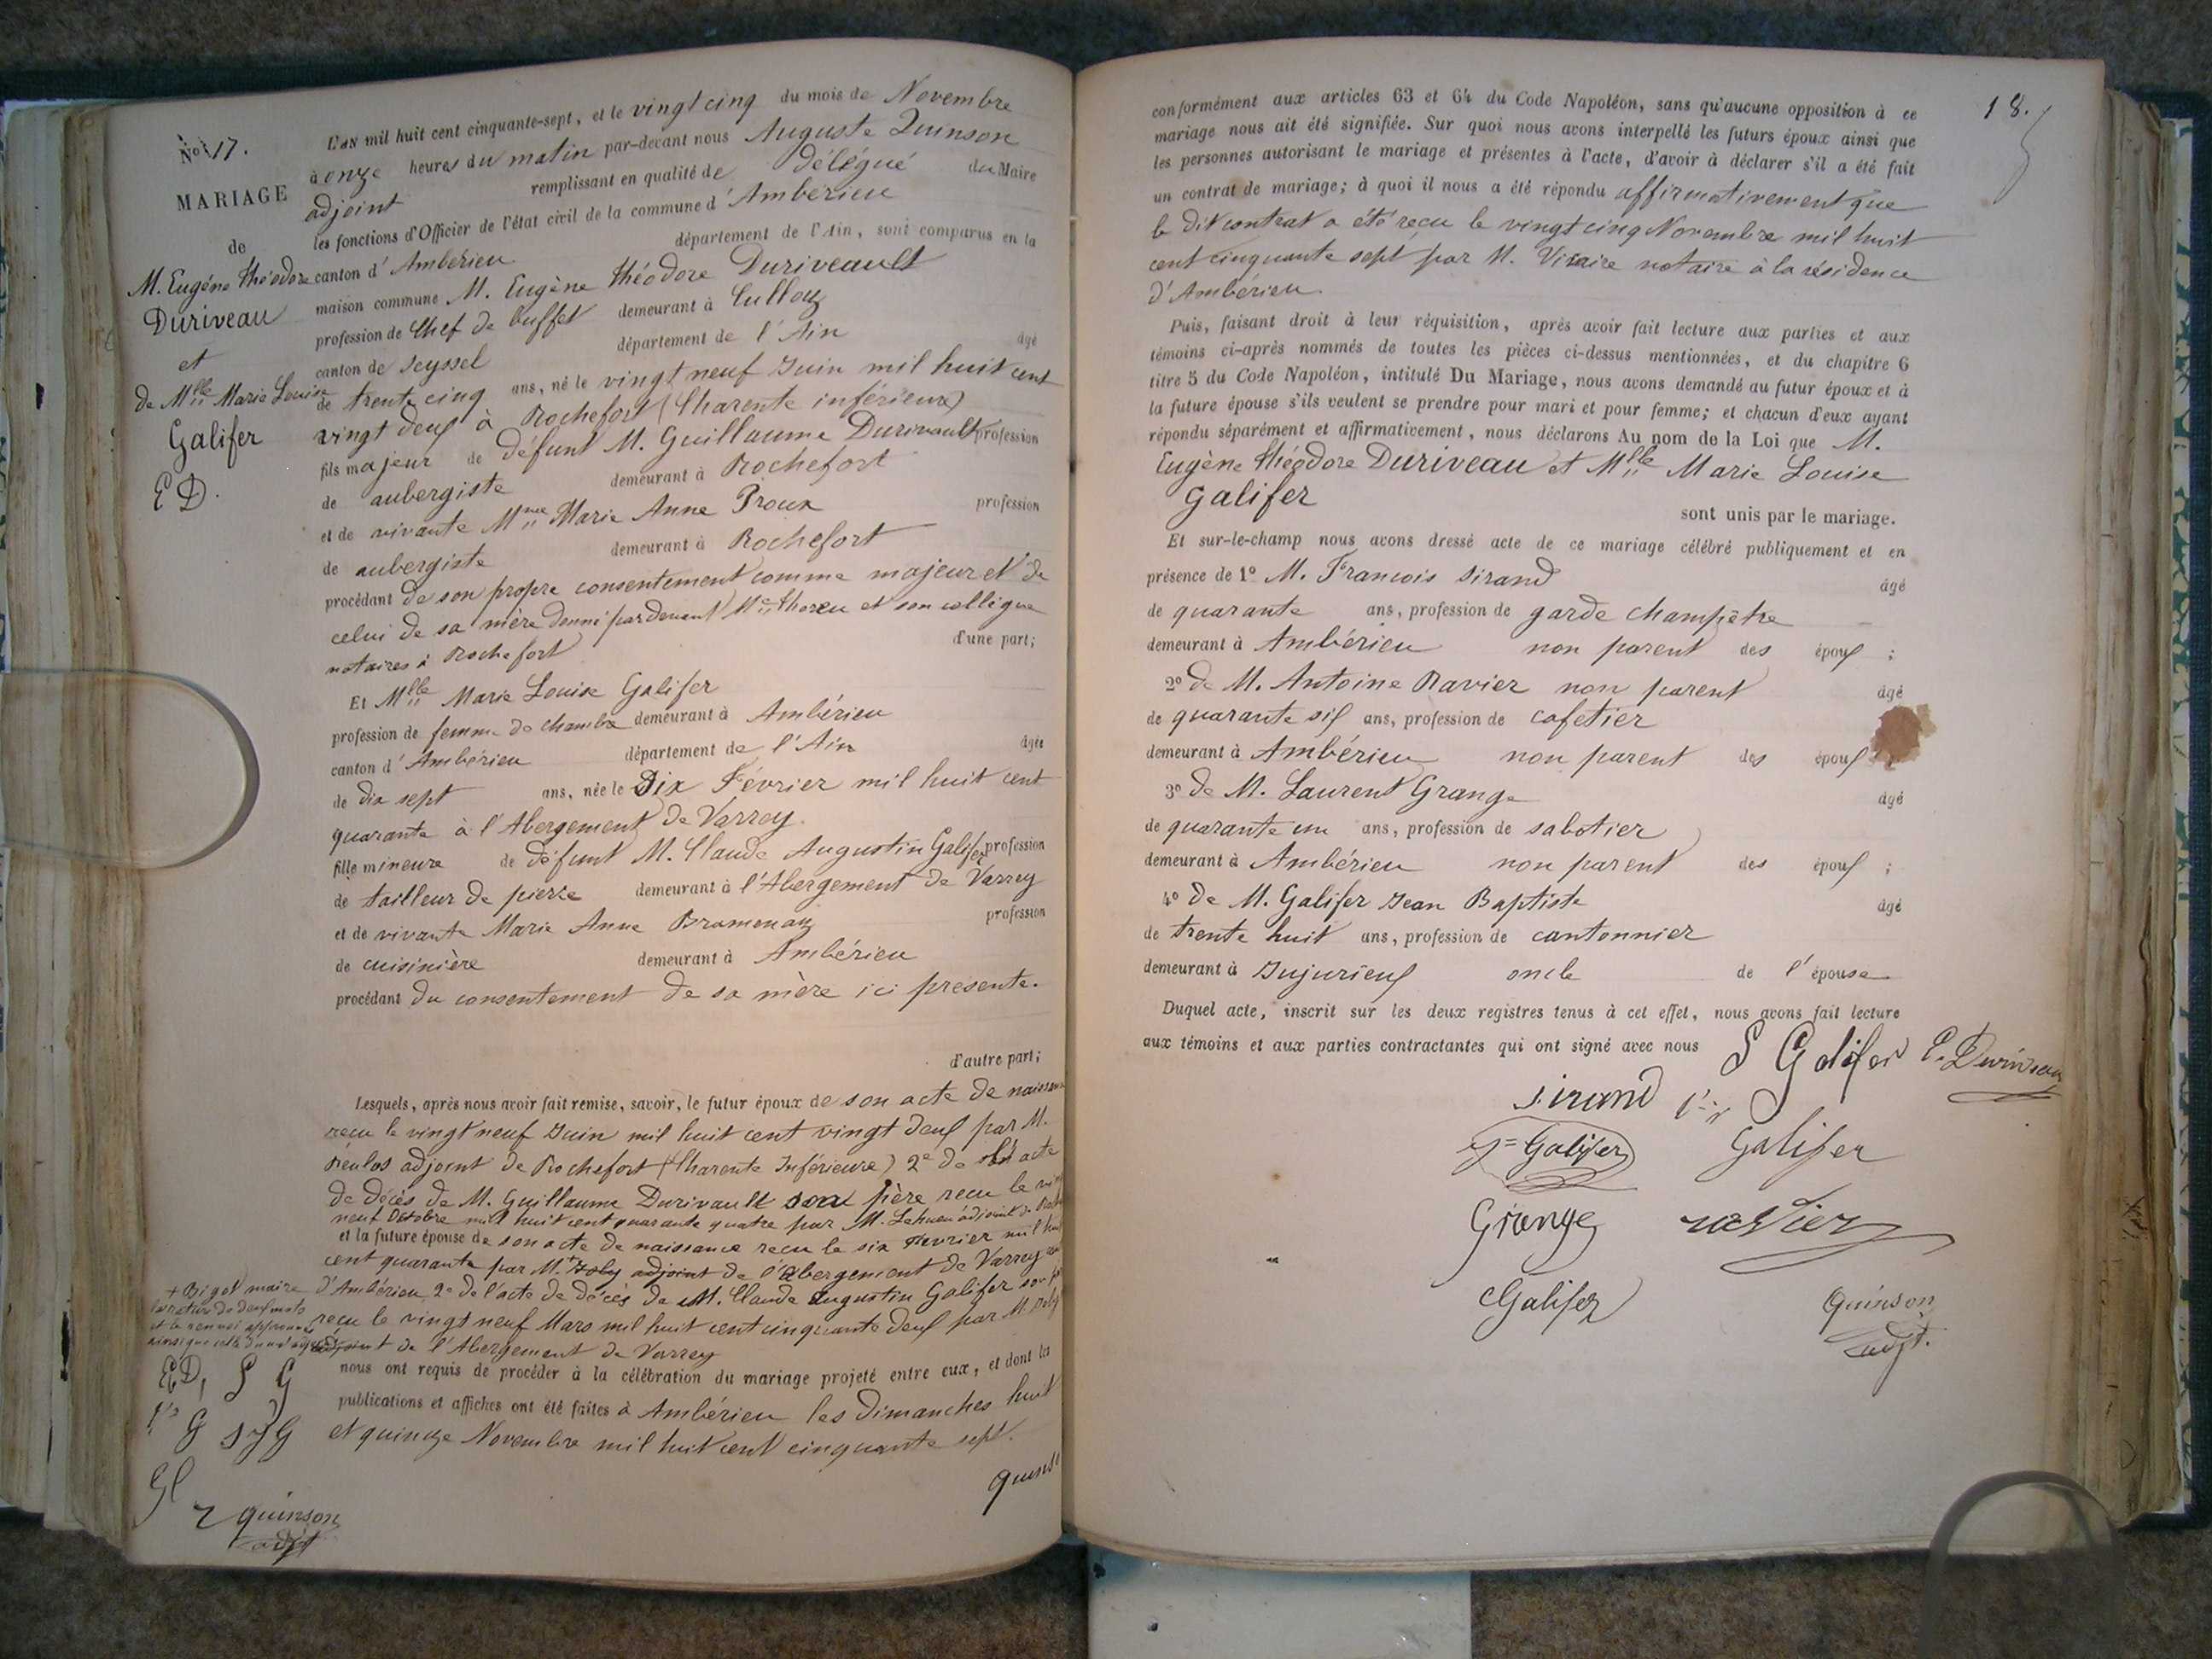 No 17.
MARIAGE
de
M. Eugène Théodore
Duriveau
et
de Mlle Marie Louise
Galifer
E D.
L'AN mil huit cent cinquante-sept, et le vingt cinq du mois de Novembre
à onze heures du matin par-devant nous Auguste Quinson
adjoint remplissant en qualité de délégué du Maire
les fonctions d'Officier de l'état civil de la commune d'Ambérieu
canton d'Ambérieu département de l'Ain, sont comparus en la
maison commune M. Eugène Théodore Duriveault
profession de Chef de buffet demeurant à Culloz
canton de Seyssel département de l'Ain âgé
de trente cinq ans, né le vingt neuf Juin mil huit cent
vingt deux à Rochefort (Charente inférieure)
fils majeur de défunt M. Guillaume Durivault profession
de aubergiste demeurant à Rochefort
et de vivante Mme Marie Anne Proux profession
de aubergiste demeurant à Rochefort
procédant de son propre consentement comme majeur et de
celui de sa mère donné pardevant Me et son collègue
notaires à Rochefort d'une part;
Et Mlle Marie Louise Galifer
profession de femme de chambre demeurant à Ambérieu
canton d'Ambérieu département de l'Ain âgée
de dix sept ans, née le Dix Février mil huit cent
quarante à l'Abergement de Varrey.
fille mineure de défunt M. Claude Augustin Galifer profession
de tailleur de pierre demeurant à l'Abergement de Varrey
et de vivante Marie Anne Bramenaz profession
de cuisinière demeurant à Ambérieu
procédant du consentement de sa mère ici présente.
d'autre part;
Lesquels, après nous avoir fait remise, savoir, le futur époux de son acte de naissance
reçu le vingt neuf Juin mil huit cent vingt deux par M.
adjoint de Rochefort (Charente Inférieure) 2e de acte
de décès de M. Guillaume Durivault son père reçu le
neuf Octobre mil huit cent quarante quatre par M. adjoint de
et la future épouse de son acte de naissance reçu le six Février mil huit
cent quarante par M. Joly adjoint de l'Abergement de Varrey
d'Ambérieu 2e de l'acte de décès de M. Claude Augustin Galifer son
reçu le vingt neuf Mars mil huit cent cinquante deux par M. Joly
adjoint de l'Abergement de Varrey
+ Bigot maire
la rature de deux mots
et le renvoi approuvés
ainsi que celle du mot
nous ont requis de procéder à la célébration du mariage projeté entre eux, et dont la
publications et affiches ont été faites à Ambérieu les dimanches huit
et quinze Novembre mil huit cent cinquante sept.
ED, S G
G S J G
Quinson
adjt
Quins
18.
conformément aux articles 63 et 64 du Code Napoléon, sans qu'aucune opposition à ce
mariage nous ait été signifiée. Sur quoi nous avons interpellé les futurs époux ainsi que
les personnes autorisant le mariage et présentes à l'acte, d'avoir à déclarer s'il a été fait
un contrat de mariage; à quoi il nous a été répondu affirmativement que
le dit contrat a été reçu le vingt cinq Novembre mil huit
cent cinquante sept par M. Visaire notaire à la résidence
d'Ambérieu
Puis, faisant droit à leur réquisition, après avoir fait lecture aux parties et aux
témoins ci-après nommés de toutes les pièces ci-dessus mentionnées, et du chapitre 6
titre 5 du Code Napoléon, intitulé Du Mariage, nous avons demandé au futur époux et à
la future épouse s'ils veulent se prendre pour mari et pour femme; et chacun d'eux ayant
répondu séparément et affirmativement, nous déclarons Au nom de la Loi que M.
Eugène Théodore Duriveau et Mlle Marie Louise
Galifer
sont unis par le mariage.
Et sur-le-champ nous avons dressé acte de ce mariage célébré publiquement et en
présence de 1o M. François Sirand âgé
de quarante ans, profession de garde champêtre
demeurant à Ambérieu non parent des époux;
2o de M. Antoine Ravier non parent âgé
de quarante six ans, profession de cafetier
demeurant à Ambérieu non parent des époux
3o de M. Laurent Grange âgé
de quarante un ans, profession de sabotier
demeurant à Ambérieu non parent des époux;
4o de M. Galifer Jean Baptiste âgé
de trente huit ans, profession de cantonnier
demeurant à Jujurieux oncle de l'épouse
Duquel acte, inscrit sur les deux registres tenus à cet effet, nous avons fait lecture
aux témoins et aux parties contractantes qui ont signé avec nous
S Galifer E. Duriveau
Sirand
Galifer Galifer
Grange ravier
Galifer Quinson
adjt.